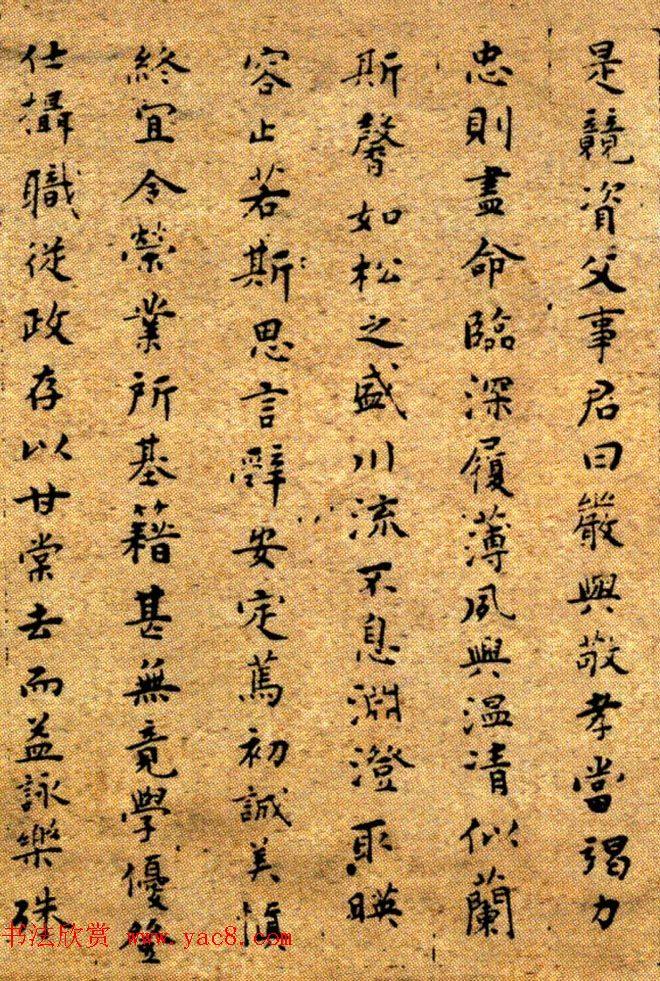 是競資父事君曰嚴與敬孝當竭力
忠則盡命臨深履薄夙興溫清似蘭
斯馨如松之盛川流不息淵澄取暎
容止若斯思言辭安定篤初誠美慎
終宜令榮業所基籍甚無竟學優登
仕攝職從政存以甘棠去而益詠樂殊
书法欣赏 www.yac8.com